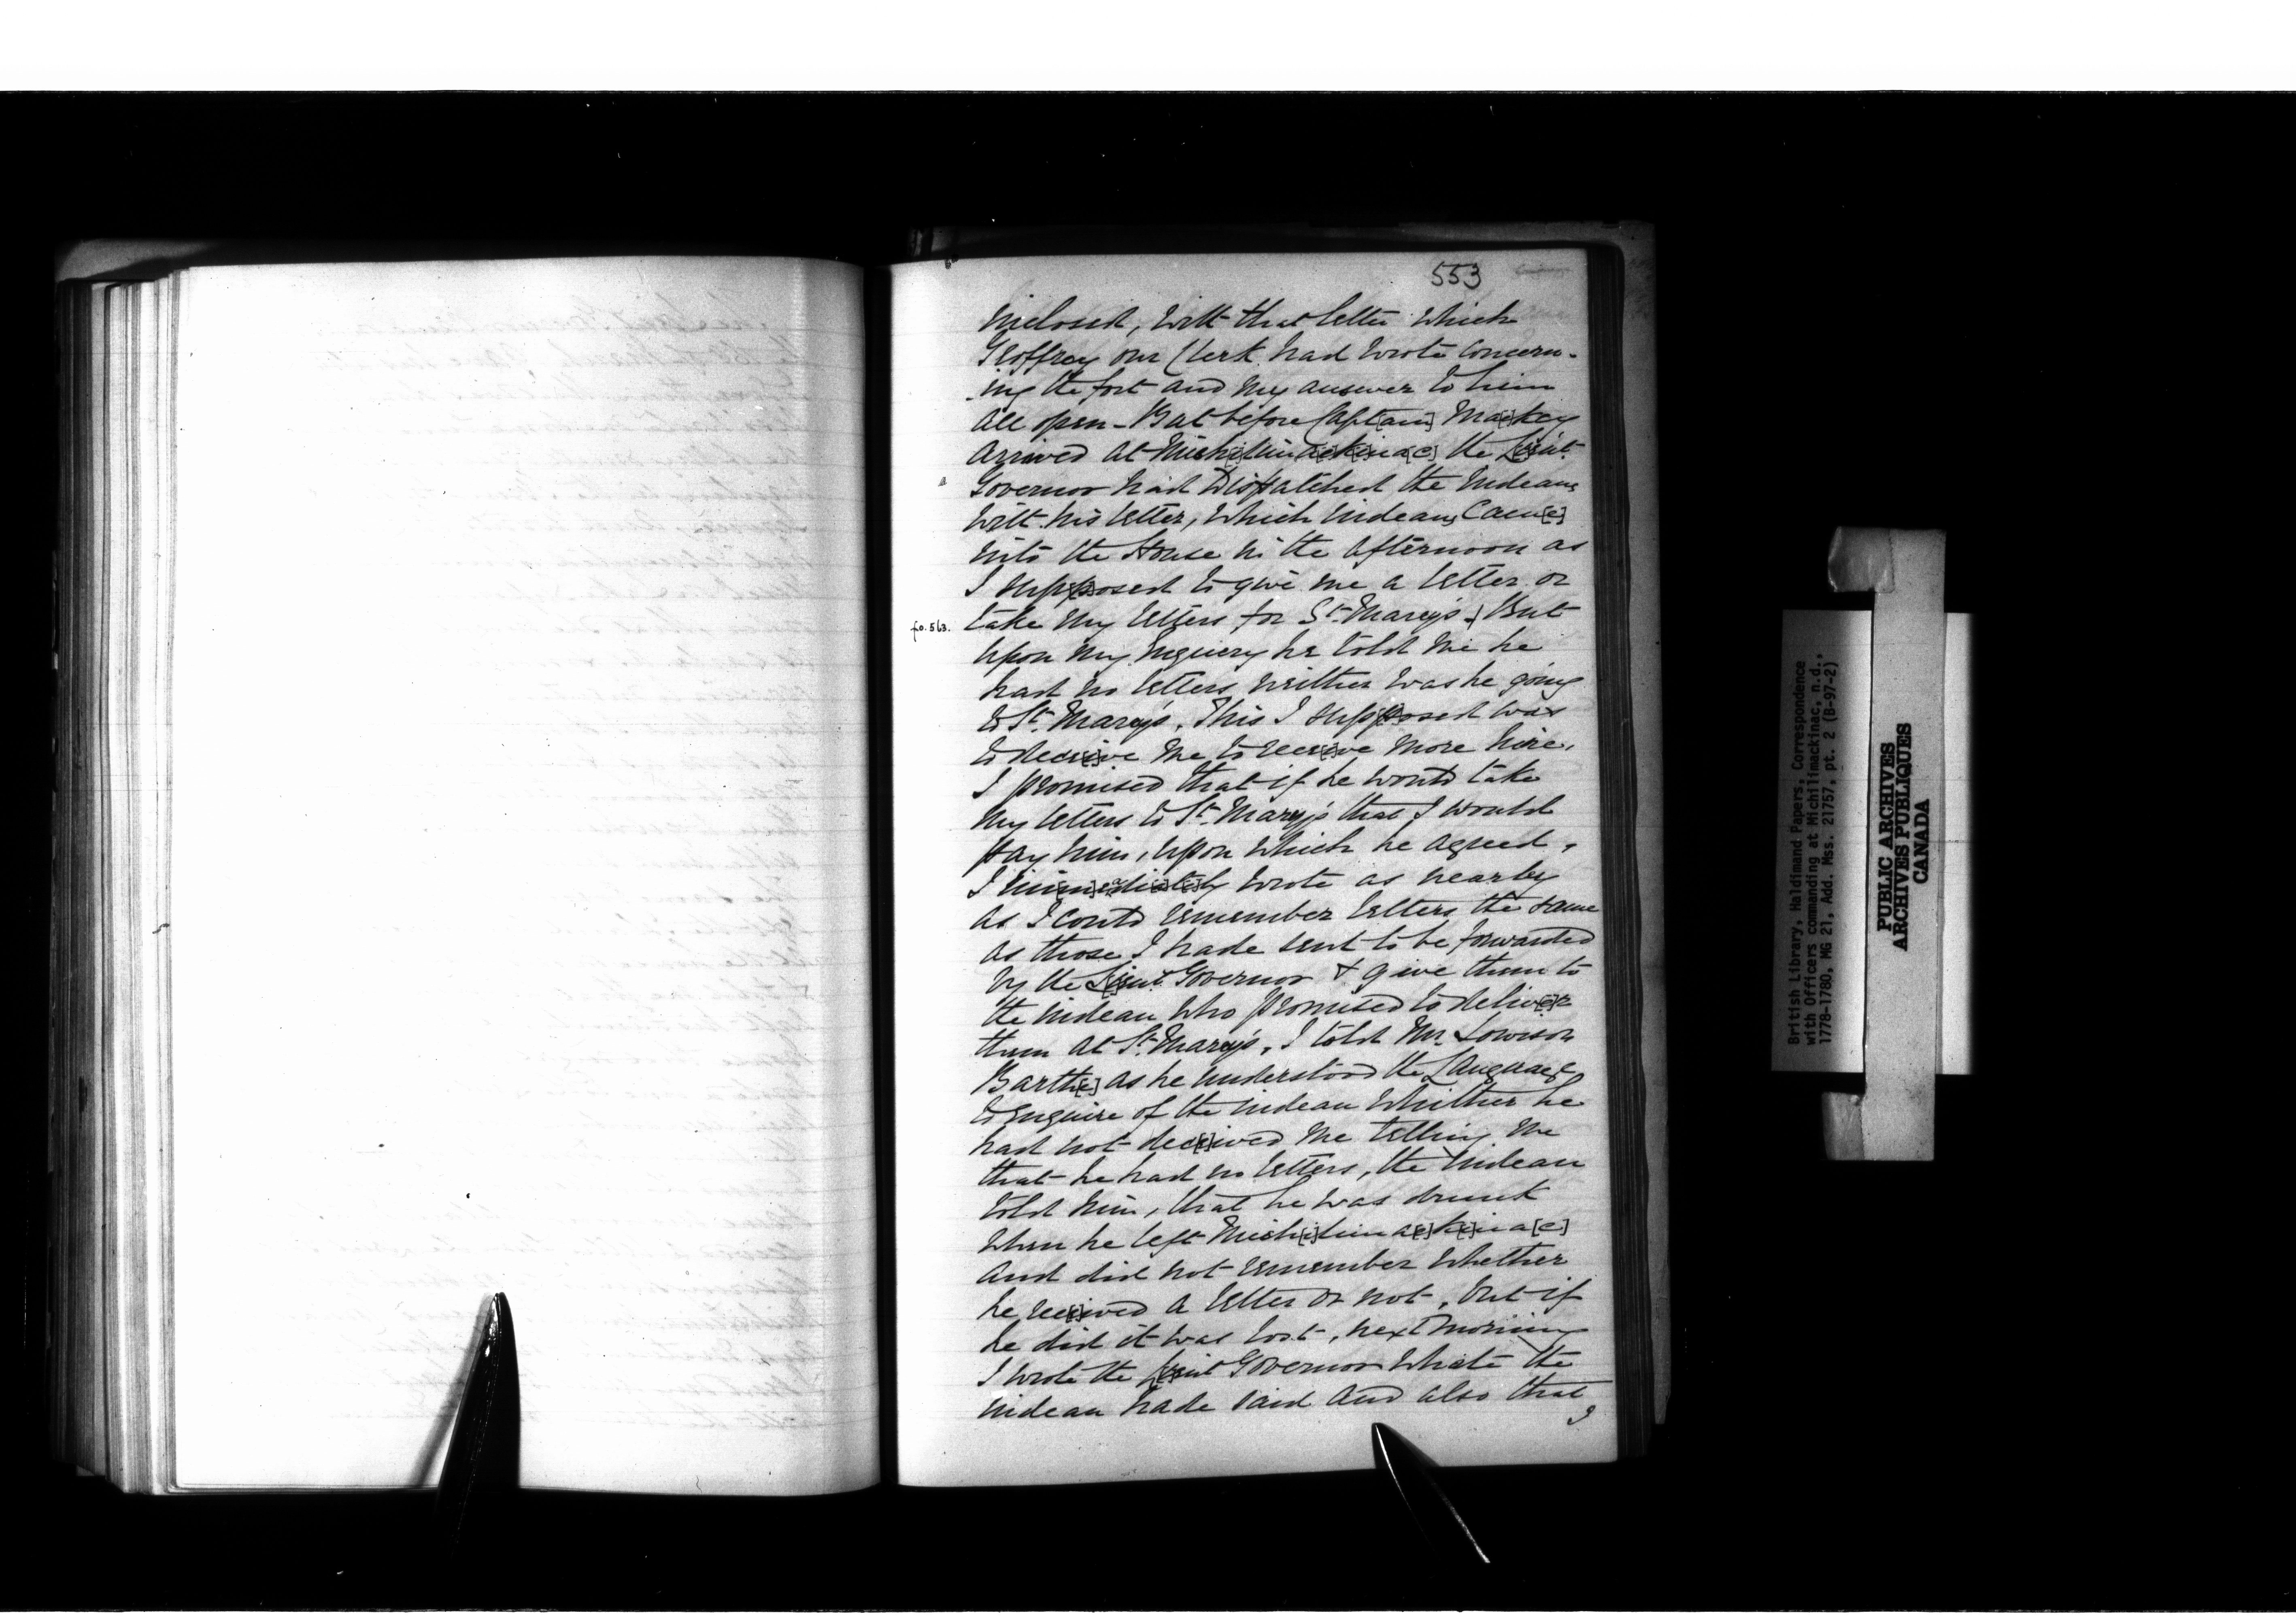 553
inclosed, with that letter which
Geoffrey our Clerk had wrote concern-
ing the fort and my answer to him
all open - But before Capt[ain] Ma[c]key
arrived at Mich[i]lima[c]k[i]na[c] the Lieut.
Governor had Dispatched the Indeans
with his letter, which indeans Cam[e]
into the House in the afternoon as
I sup[p]osed to give me a letter or
fo. 563.
take my letters for St. Mary's, But
upon my Inquiery he told me he
had no letters neither was he going
to St. Mary's. This I sup[p]osed was
to dec[e]ive me to rec[e]ive more hire,
I promised that if he would take
my letters to St. Mary's that I would
pay him, upon which he agreed,
I im[m]ediat[e]ly wrote as nearly
as I could remember letters the same
as those I hade sent to be forwarded
by the Lieut. Governor & give them to
the indean who promised to deliv[e]r
them at St. Mary's, I told Mr. Lowison
Barth[e] as he understood the Language
to Enquire of the indean whither he
had not dec[e]ived me telling me
that he had no letters, the indean
told him, that he was drunk
when he left Mich[i]lima[c]k[i]na[c]
and did not remember whether
he rec[e]ived a letter or not, but if
he did it was lost, next morning
I wrote the Lieut Governor whate the
indean hade said and also that
I
British Library, Haldimand Papers, Correspondence
with Officers commanding at Michilimackinac, n.d.,
1778-1780, MG 21, Add. Mss. 21757, pt. 2 (B-97-2)
PUBLIC ARCHIVES
ARCHIVES PUBLIQUES
CANADA